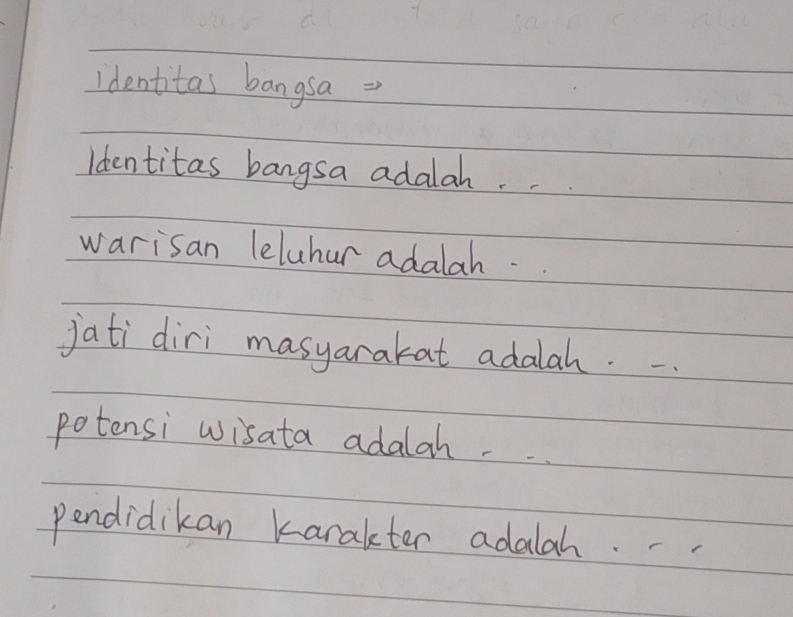 identitas bangsa ⇒
Identitas bangsa adalah . . .
warisan leluhur adalah . .
jati diri masyarakat adalah . . .
potensi wisata adalah . . .
pendidikan karakter adalah . . .